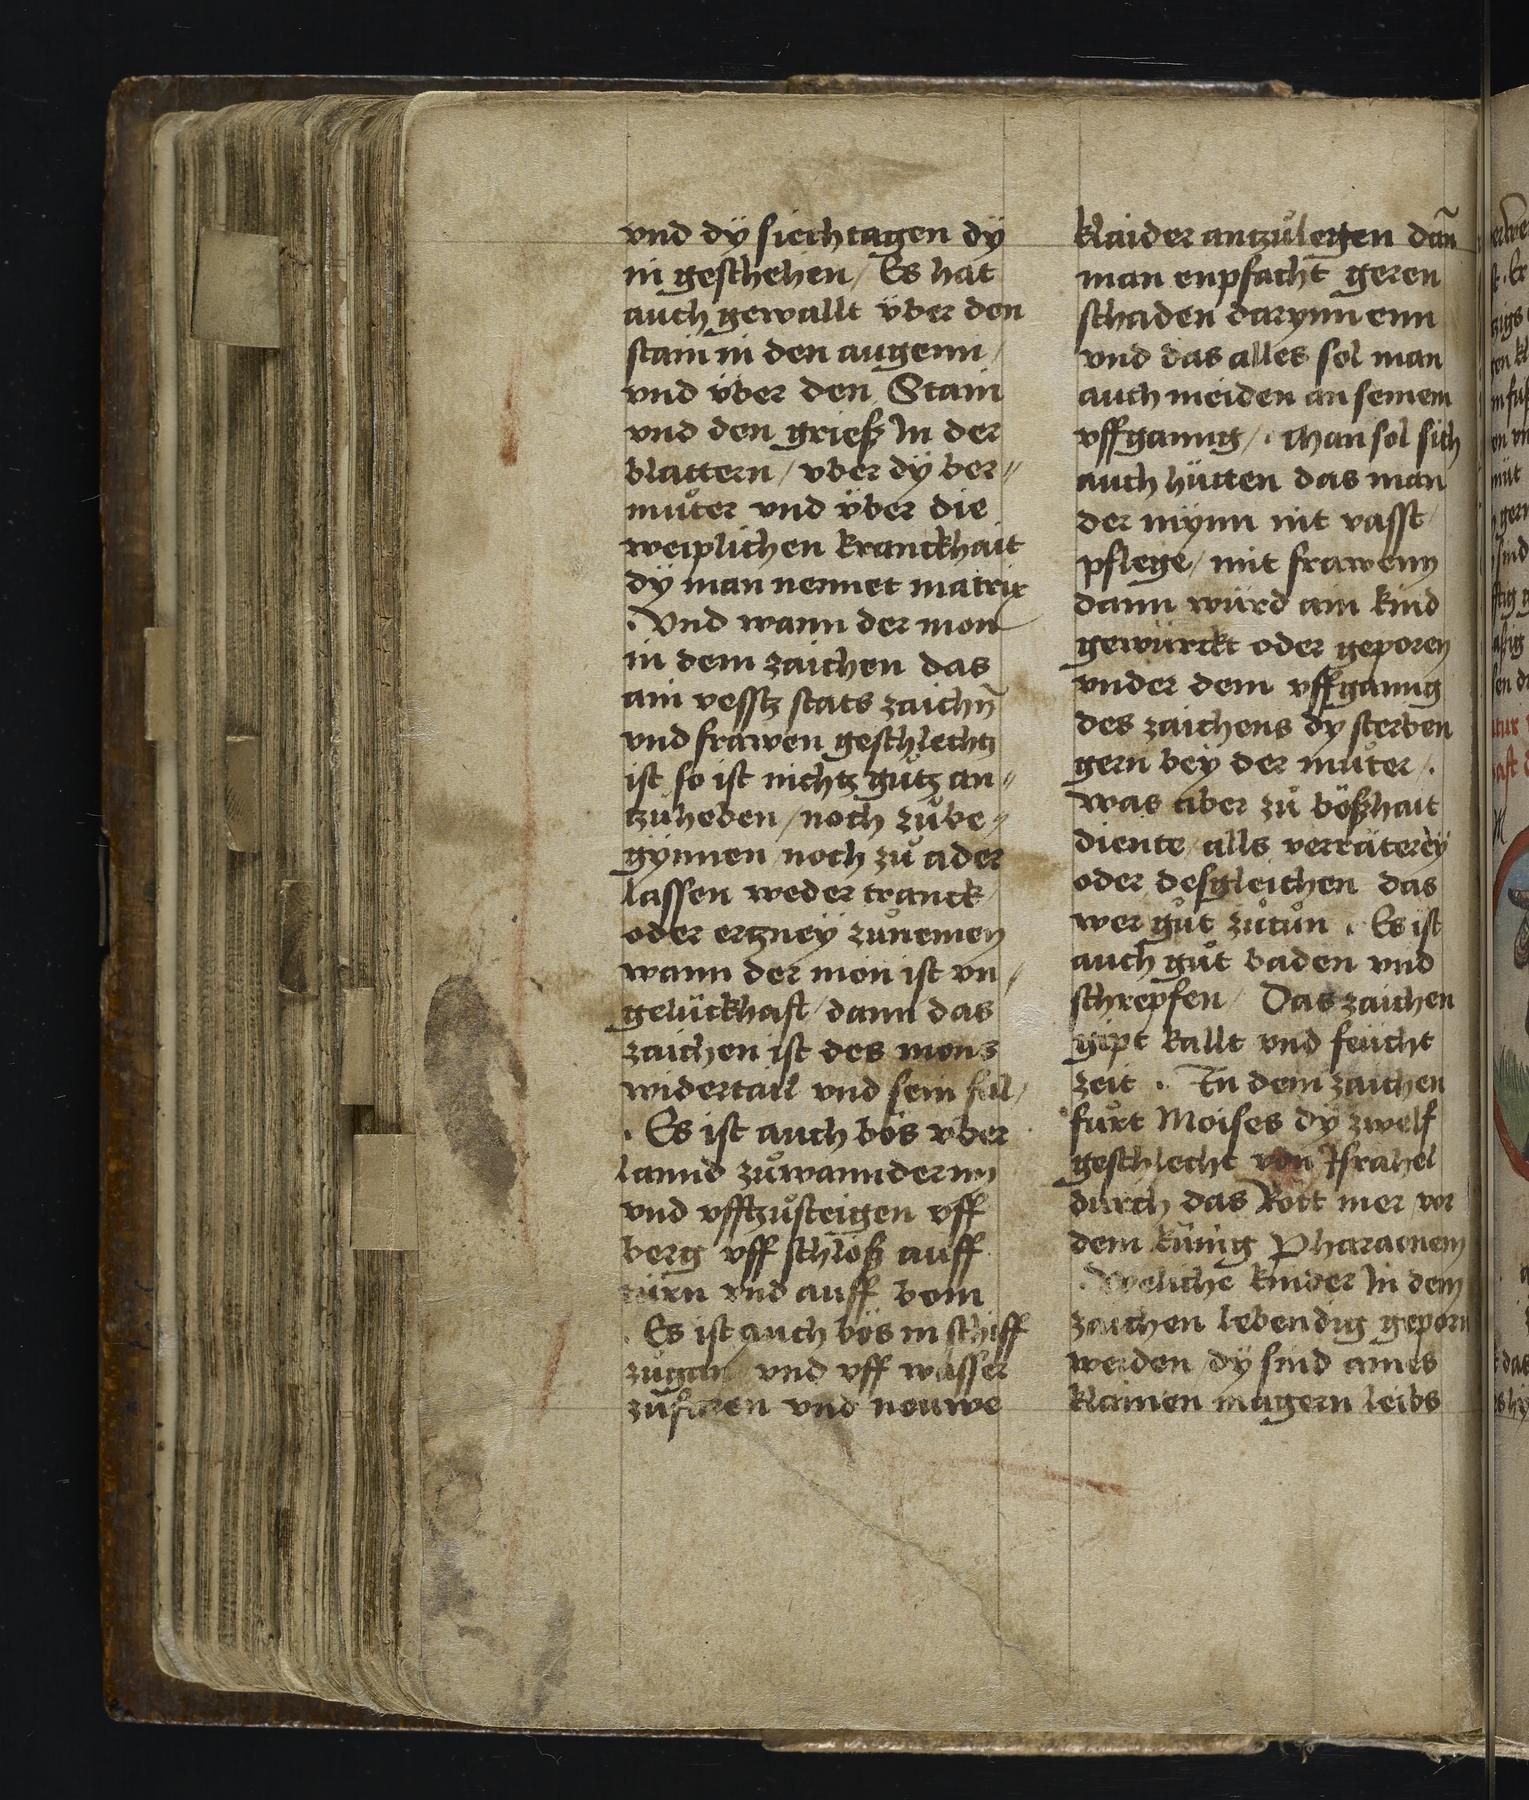 vnd dÿ siechtagen dÿ
in geschehen / Es hat
auch gewallt v̈ber den
stain in den augenn /
vnd v̈ber den Stain
vnd den grieß In der
blattern / vber dÿ ber〃
můter vnd v̈ber die
weiplichen kranckhait
dÿ man nennet matrix
. Vnd wann der mon
in dem zaichen das
ain vesstz stats zaichn̄
vnd frawen geschlechtz
ist so ist nichtz gůtz an〃
tzuheben / noch zůbe〃
gÿnnen noch zů ader
lassen weder tranck
oder ertzneÿ zůnemen
wann der mon ist vn〃
gelückhaft / dann das
zaichen ist des mons
widertail vnd sein fal /
. Es ist auch bös v̈ber
lannd zůwanndernn
vnd vfftzůsteigen vff
berg vff schloß auff
türn vnd auff bom
. Es ist auch bös in schiff
zůgan vnd vff wasser
zůfaren vnd neuwe
klaider antzůlegen dan̄
man enpfacht geren
schaden darynn enn
vnd das alles sol man
auch meiden an seinem
vffganng / . Man sol sich
auch hütten das man
der mÿnn nit vasst
pflege / mit frawenn
dann würd ain kind
gewürckt oder geporen
vnder dem vffganng
des zaichens dy sterben
gern beÿ der můter / .
was aber zů bößhait
diente alls verräterëÿ
oder desgleichen das
wer gůt zůtůn . Es ist
auch gůt baden vnd
schrepfen / Das zaichen
gipt kallt vnd feücht
zeit . In dem zaichen
fůrt Moises dÿ zwelf
geschlecht von Israhel
durch das Rott mer vor
dem künig Pharaonem
. Weliche kinder In dem
zaichen lebendig geporn
werden / dÿ sind aines
klainen magern leibs